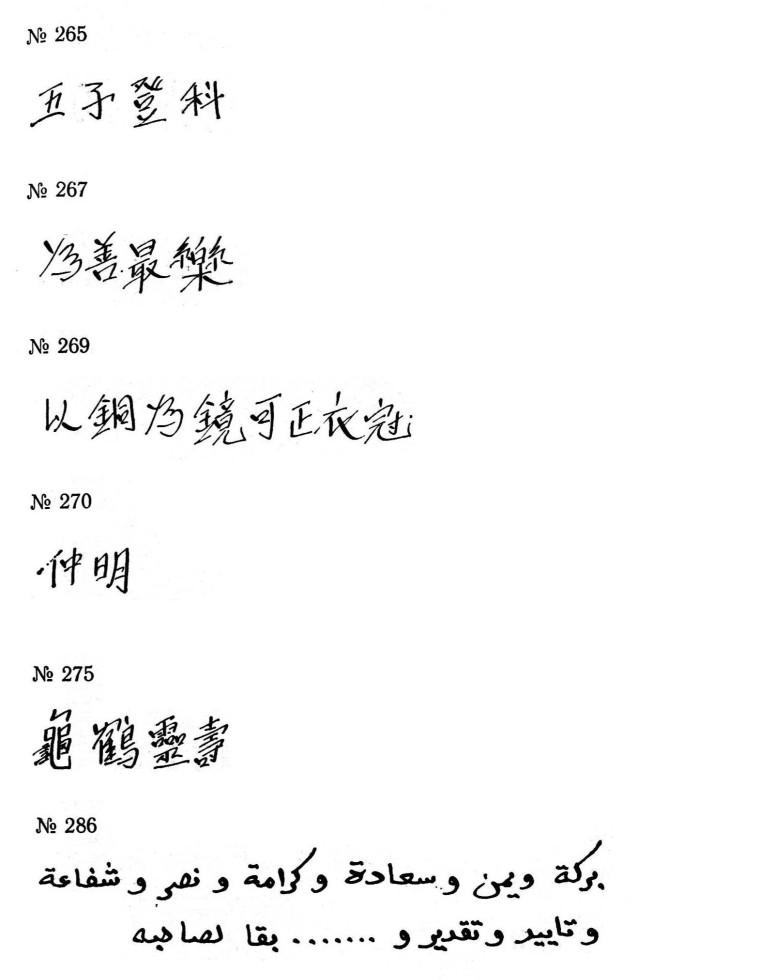 № 265
五子登科
№ 267
為善最樂
№ 269
以銅為鏡可正衣冠
№ 270
仲明
№ 275
龜鶴靈壽
№ 286
بركة ويمن و سعادة و كرامة و نصر و شفاعة
و تاييد و تقدير و ....... بقا لصاحبه